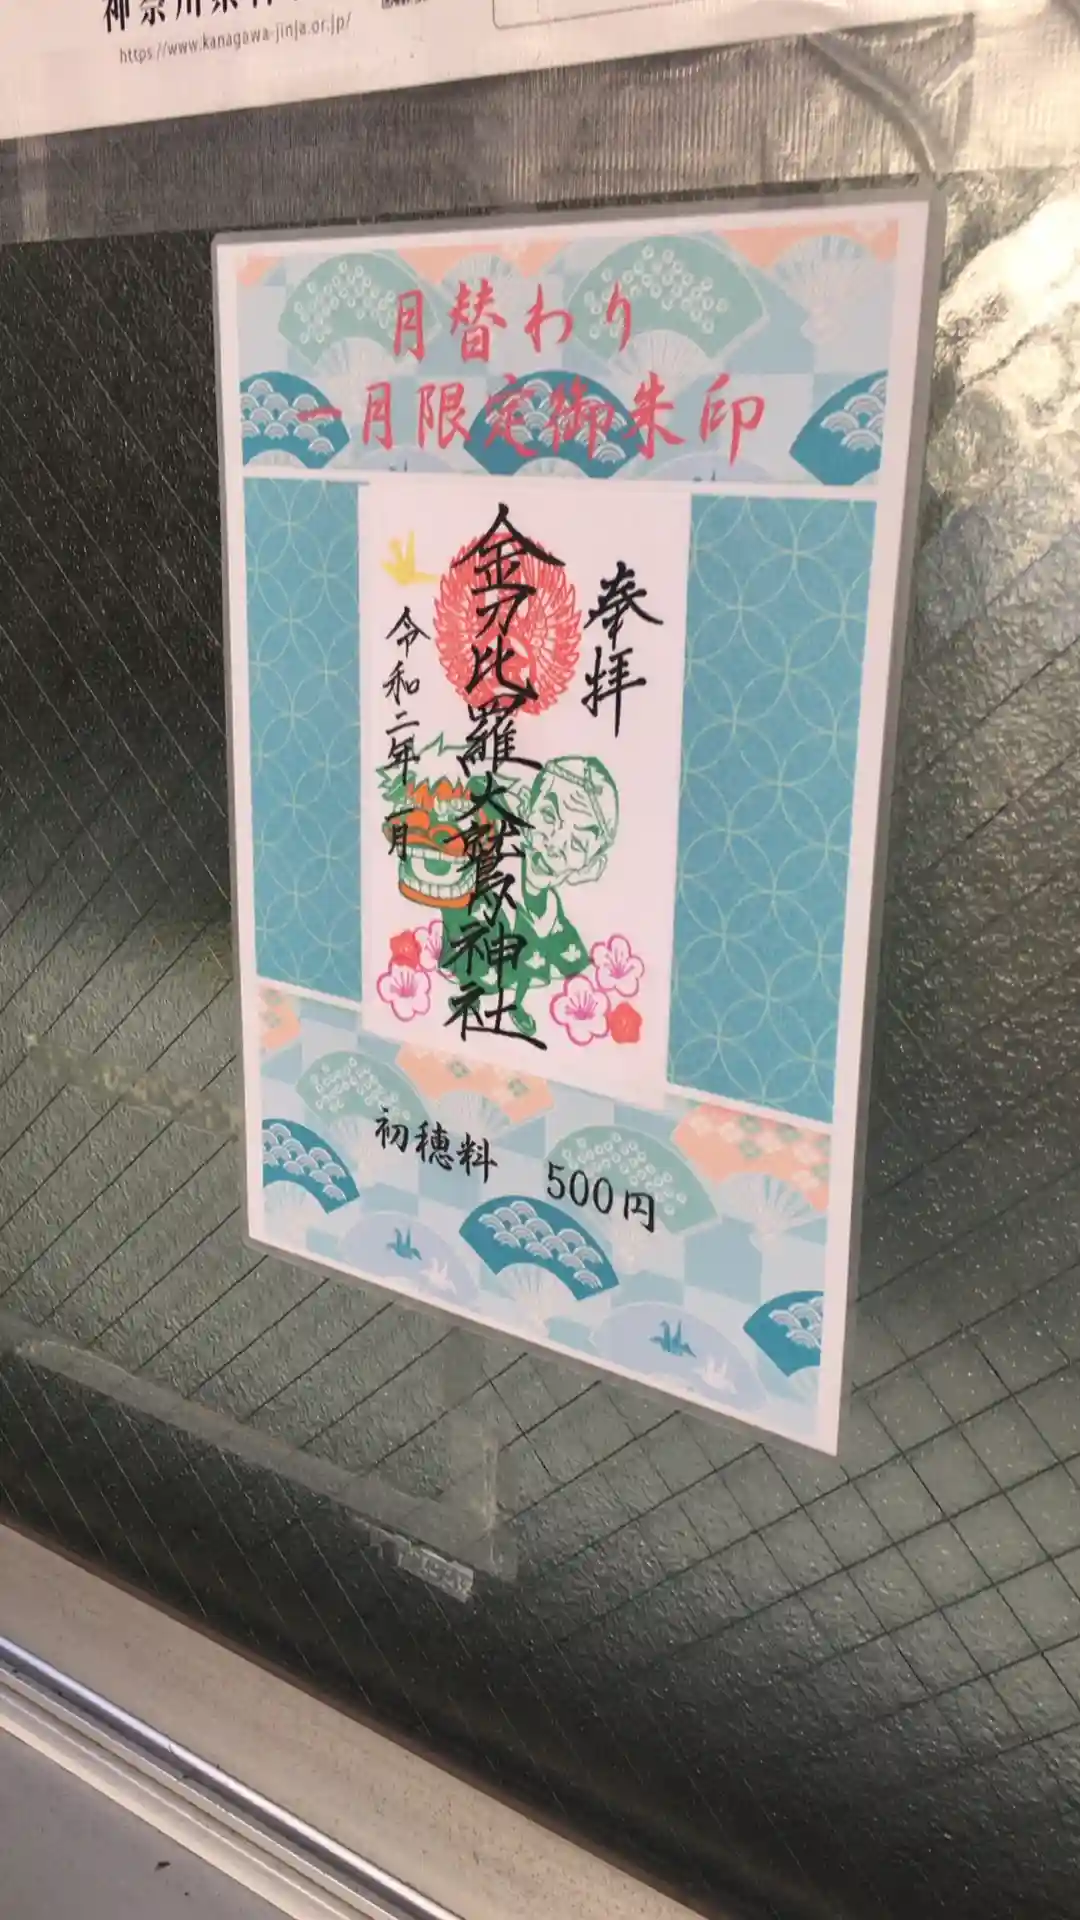 https://www.kanagawa-jinja.or.jp/
月替わり
一月限定御朱印
奉拝
金刀比羅大鷲神社
令和二年 一月
初穂料 500円